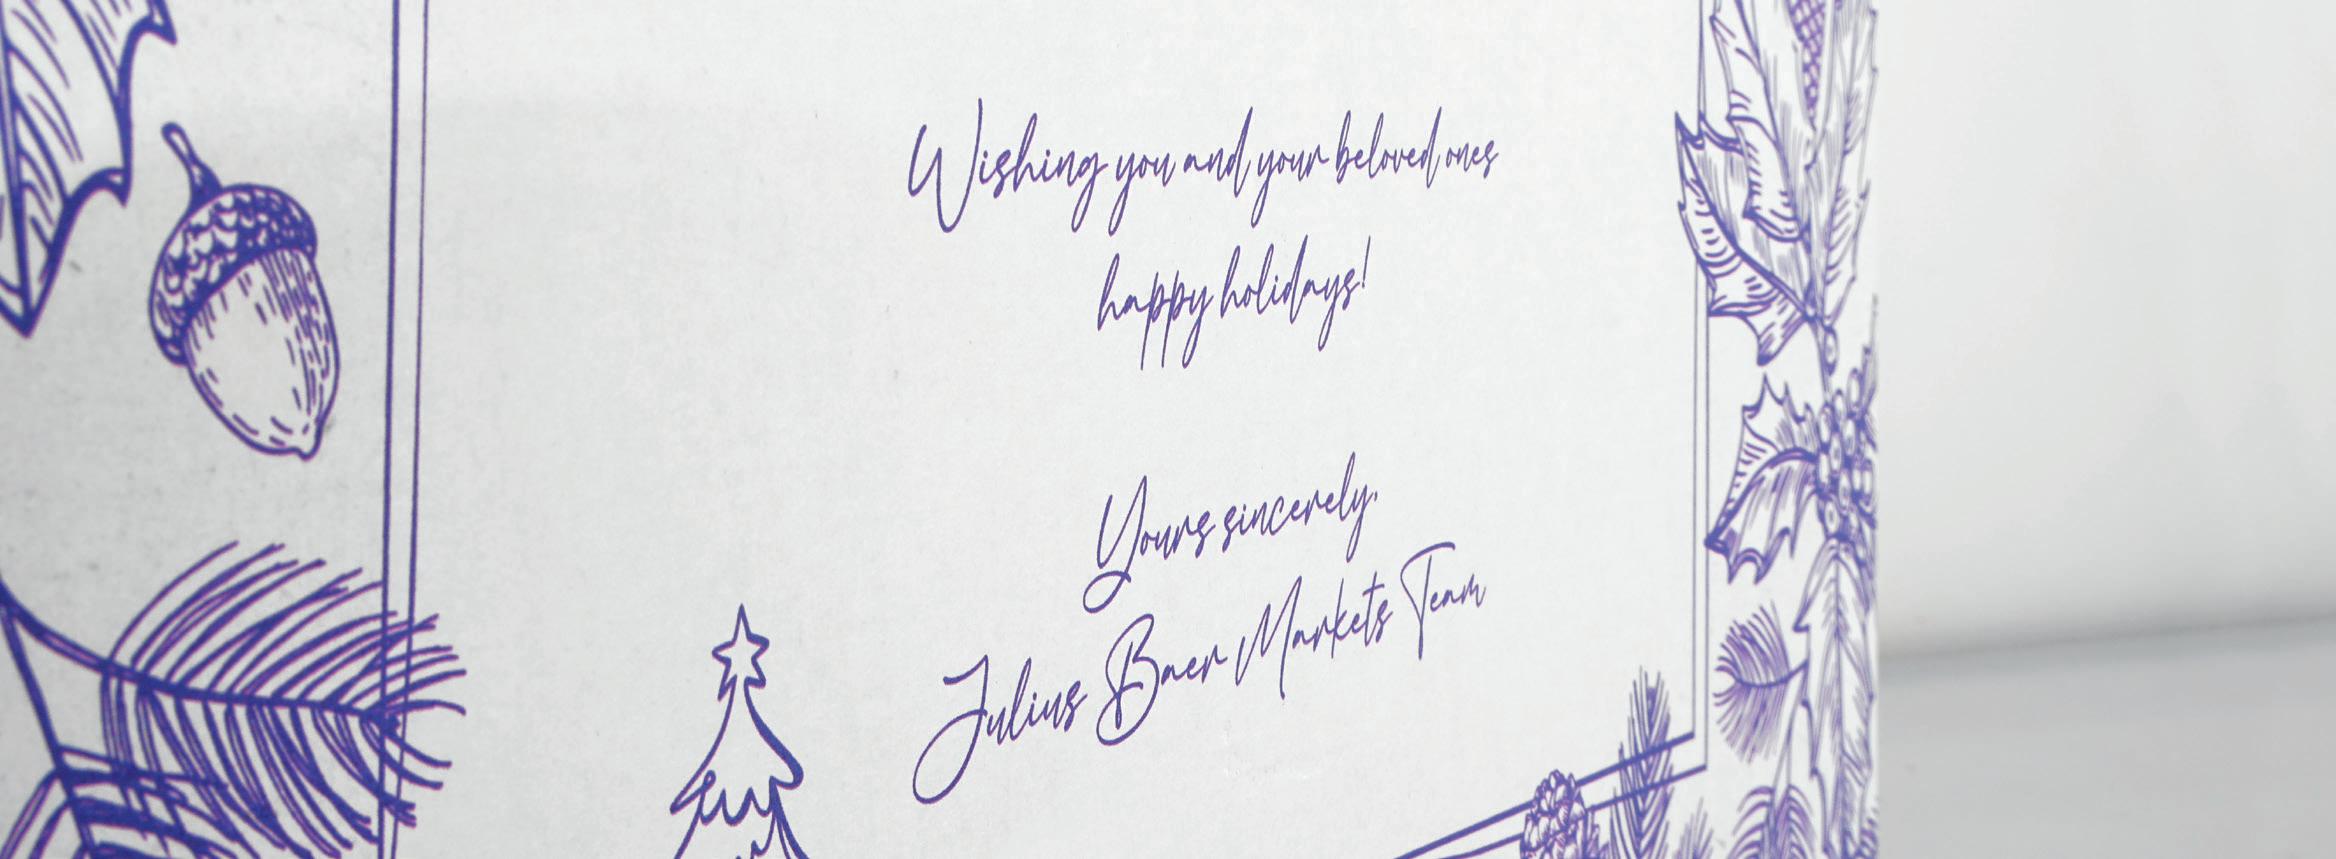 Wishing you and your beloved ones
happy holidays!
Yours sincerely,
Julius Baer Markets Team